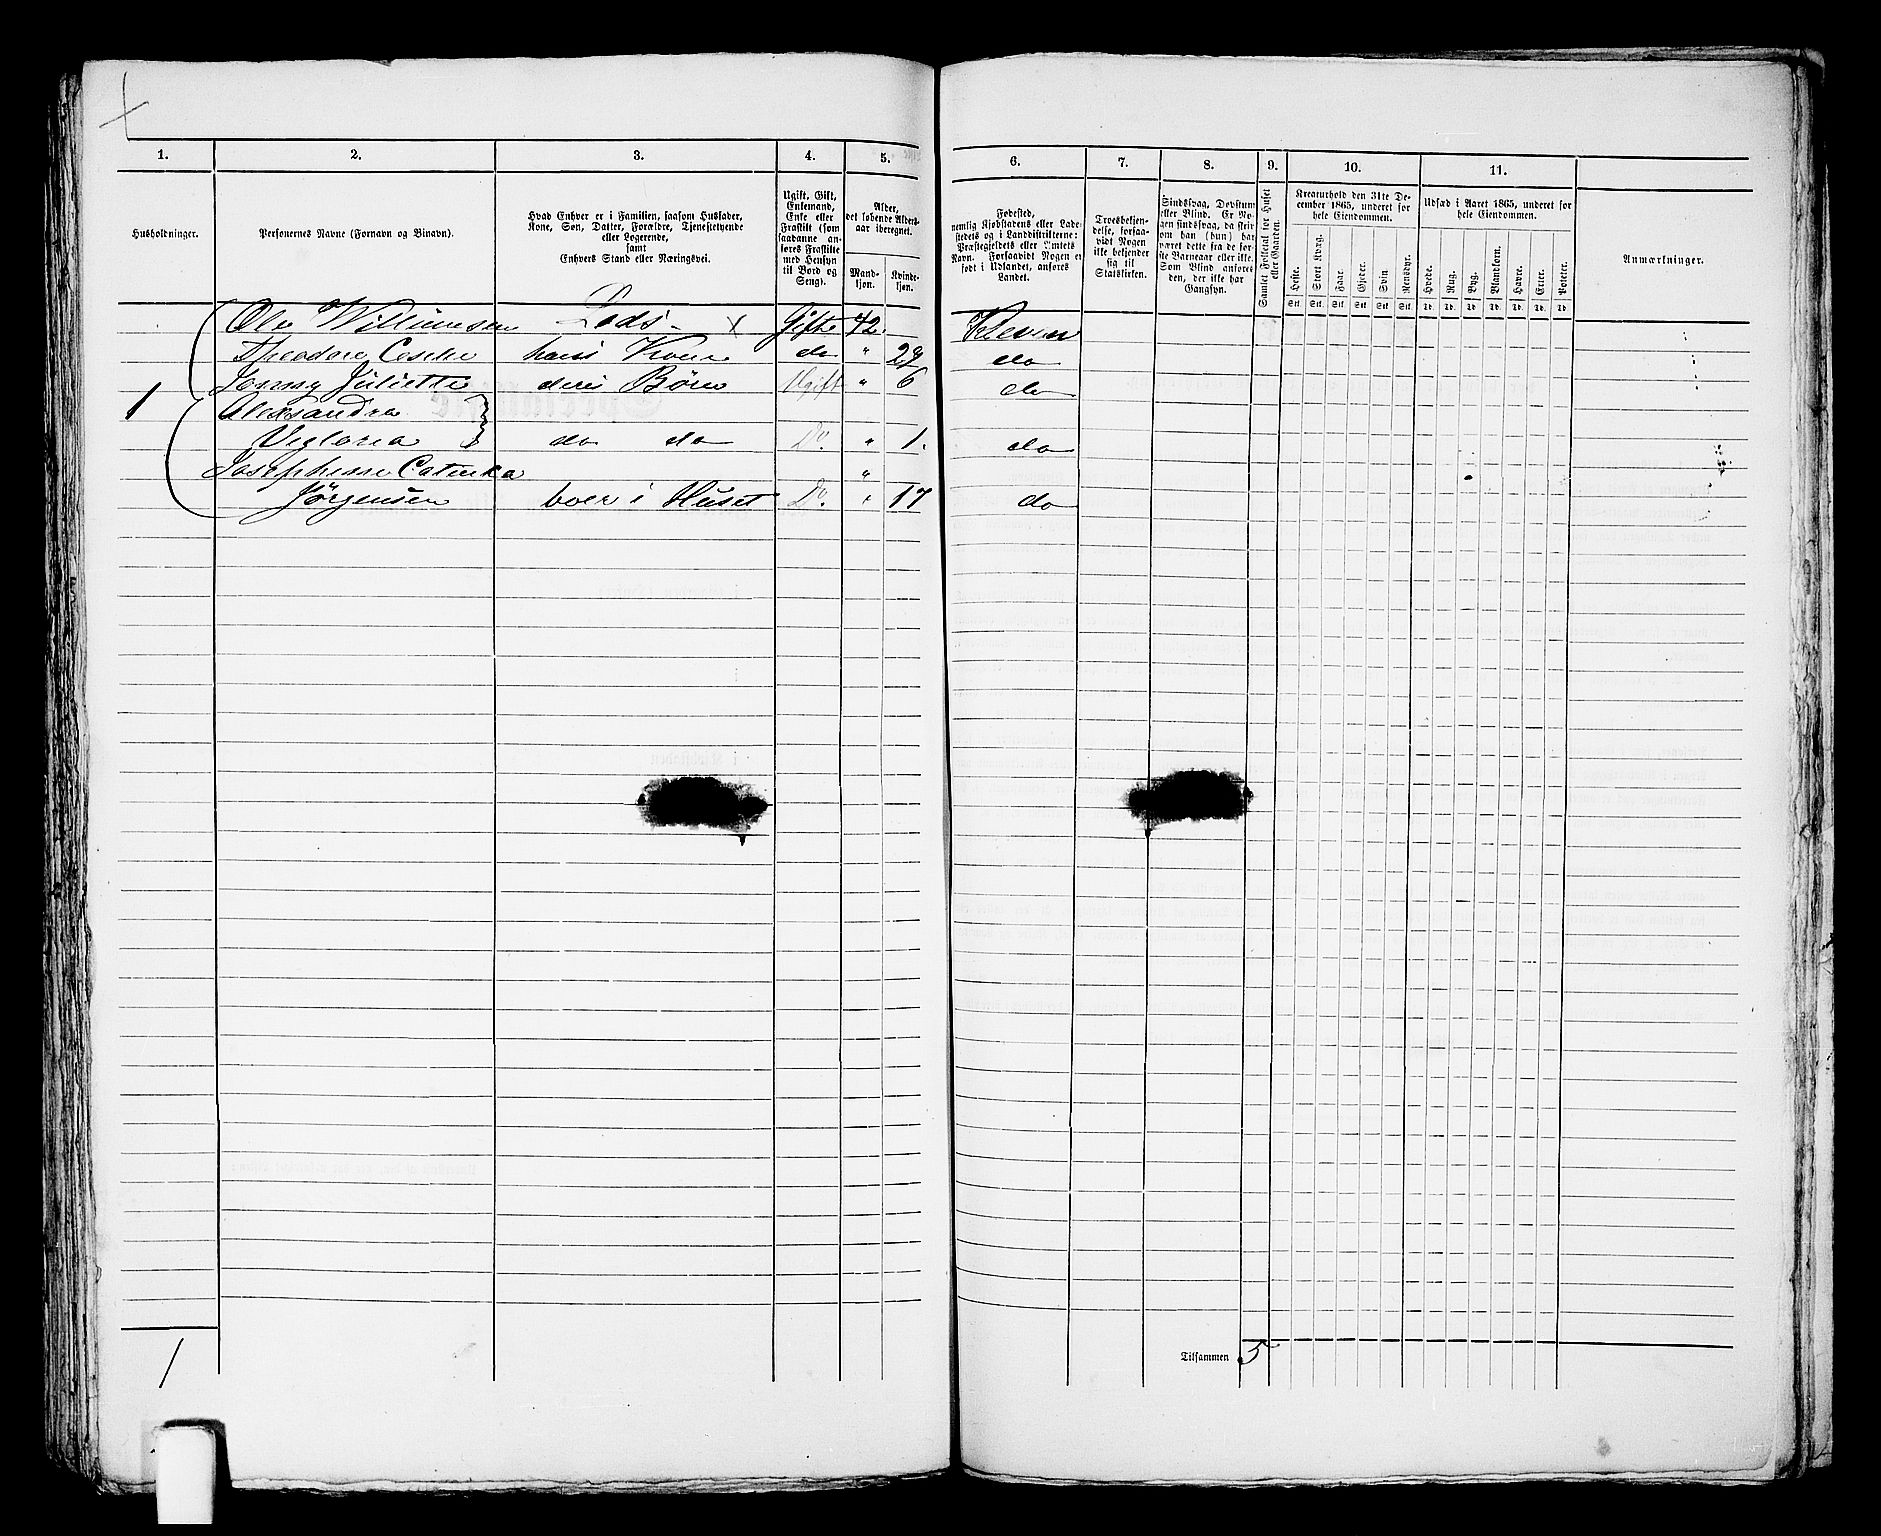 1. 2. 3. 4. 5. 6. 7. 8. 9. 10. 11.
Husholdninger.
Personernes Navne (Fornavn og Binavn).
Hvad Enhver er i Familien, saasom Husfader,
Kone, Søn, Datter, Forældre, Tjenestetyende
eller Logerende,
samt
Enhvers Stand eller Næringsvei.
Ugift, Gift,
Enkemand,
Enke eller
Fraskilt (som
saadanne an-
føres Fraskilte
med Hensyn
til Bord og
Seng).
Alder,
det løbende Alders-
aar iberegnet.
Mand-
kjøn.
Kvinde-
kjøn.
Fødested,
nemlig Kjøbstadens eller Lade-
stedets og i Landdistrikterne:
Præstegjeldets eller Amtets
Navn. Forsaavidt Nogen er
født i Udlandet, anføres
Landet.
Troesbekjen-
delse, forsaa-
vidt Nogen
ikke bekjender
sig til
Statskirken.
Sindssvag, Døvstum
eller Blind. Er No-
gen sindssvag, da skriv
om han (hun) har
været dette fra de før-
ste Barneaar eller ikke.
Som Blind anføres
den, der ikke har
Gangsyn.
Samlet Folketal for Huset
eller Gaarden.
Kreaturhold den 31te De-
cember 1865, underet for
hele Eiendommen.
Heste. Stort Kvæg. Faar. Gjeder. Svin. Rensdyr.
Stk. Stk. Stk. Stk. Stk. Stk.
Udsæd i Aaret 1865, underet for
hele Eiendommen.
Hvede. Rug. Byg. Blandkorn. Havre. Erter. Poteter.
Td. Td. Td. Td. Td. Td. Td.
Anmærkninger.
Ole Willumsen Lods - x Gifte 42. Kleven
Theodore hans Kone do " 29 do
Jenny Juliette deres Børn Ugift " 6 do
1 Aleksandra
do do Do. " 1. do
Josephine Catinka "
Jørgensen boer i Huset Do. " 17 do
1
Tilsammen 5